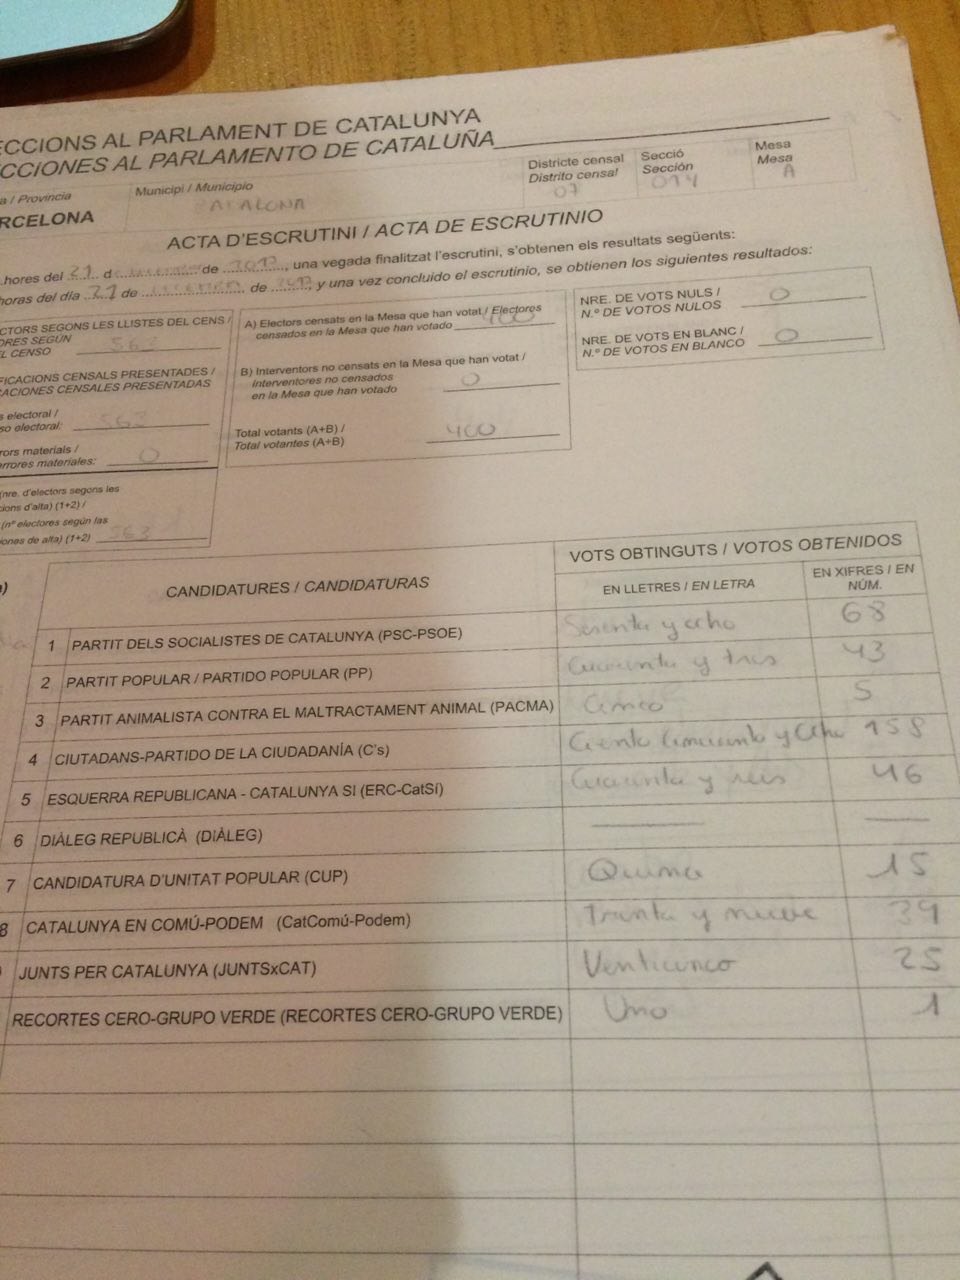 ECCIONS AL PARLAMENT DE CATALUNYA
CCIONES AL PARLAMENTO DE CATALUÑA
a / Provincia
RCELONA
Municipi / Municipio
BADALONA
Districte censal
Distrito censal
07
Secció
Sección
014
Mesa
Mesa
A
ACTA D'ESCRUTINI / ACTA DE ESCRUTINIO
hores del 21 d de 2017, una vegada finalitzat l'escrutini, s'obtenen els resultats següents:
horas del día 21 de de 2017, y una vez concluido el escrutinio, se obtienen los siguientes resultados:
CTORS SEGONS LES LLISTES DEL CENS /
ORES SEGÚN
L CENSO 563
FICACIONS CENSALS PRESENTADES /
CACIONES CENSALES PRESENTADAS
s electoral /
so electoral: 563
rors materials /
errores materiales: 0
(nre. d'electors segons les
cions d'alta) (1+2) /
(nº electores según las
iones de alta) (1+2) 563
A) Electors censats en la Mesa que han votat / Electores
censados en la Mesa que han votado 400
B) Interventors no censats en la Mesa que han votat /
Interventores no censados
en la Mesa que han votado 0
Total votants (A+B) /
Total votantes (A+B) 400
NRE. DE VOTS NULS /
N.º DE VOTOS NULOS 0
NRE. DE VOTS EN BLANC /
N.º DE VOTOS EN BLANCO 0
CANDIDATURES / CANDIDATURAS
VOTS OBTINGUTS / VOTOS OBTENIDOS
EN LLETRES / EN LETRA
EN XIFRES / EN NÚM.
1 PARTIT DELS SOCIALISTES DE CATALUNYA (PSC-PSOE) Sesenta y ocho 68
2 PARTIT POPULAR / PARTIDO POPULAR (PP) Cuarenta y tres 43
3 PARTIT ANIMALISTA CONTRA EL MALTRACTAMENT ANIMAL (PACMA) Cinco 5
4 CIUTADANS-PARTIDO DE LA CIUDADANÍA (C's) Ciento Cincuenta y Ocho 158
5 ESQUERRA REPUBLICANA - CATALUNYA SI (ERC-CatSí) Cuarenta y seis 46
6 DIÀLEG REPUBLICÀ (DIÀLEG)
7 CANDIDATURA D'UNITAT POPULAR (CUP) Quince 15
8 CATALUNYA EN COMÚ-PODEM (CatComú-Podem) Treinta y nueve 39
JUNTS PER CATALUNYA (JUNTSxCAT) Venticinco 25
RECORTES CERO-GRUPO VERDE (RECORTES CERO-GRUPO VERDE) Uno 1